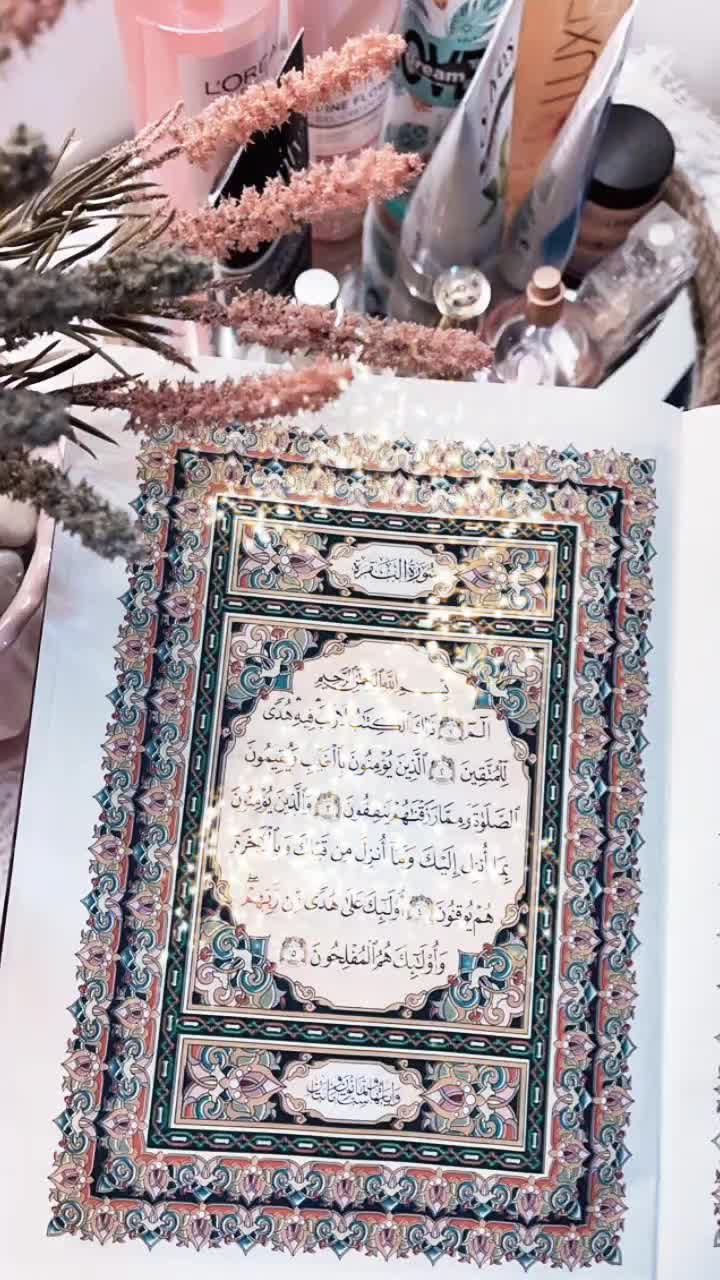 L'ORÉA
DINE FLOW
ream
LUX
سُورَةُ الْبَقَرَة
بِسْمِ اللَّهِ الرَّحْمَٰنِ الرَّحِيمِ
الٓمٓ ١ ذَٰلِكَ ٱلْكِتَٰبُ لَا رَيْبَ فِيهِ هُدًى
لِّلْمُتَّقِينَ ٢ ٱلَّذِينَ يُؤْمِنُونَ بِٱلْغَيْبِ وَيُقِيمُونَ
ٱلصَّلَوٰةَ وَمِمَّا رَزَقْنَٰهُمْ يُنفِقُونَ ٣ وَٱلَّذِينَ يُؤْمِنُونَ
بِمَآ أُنزِلَ إِلَيْكَ وَمَآ أُنزِلَ مِن قَبْلِكَ وَبِٱلْءَاخِرَةِ
هُمْ يُوقِنُونَ ٤ أُو۟لَٰٓئِكَ عَلَىٰ هُدًى مِّن رَّبِّهِمْ ۖ
وَأُو۟لَٰٓئِكَ هُمُ ٱلْمُفْلِحُونَ ٥